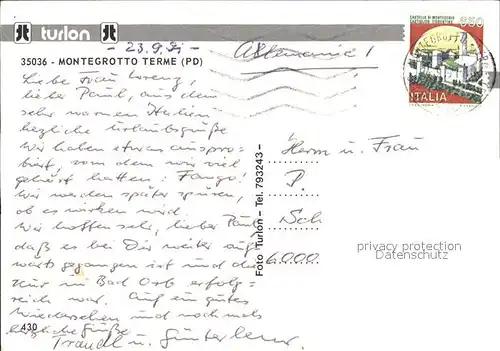 turlon
35036 - MONTEGROTTO TERME (PD)
23.9.
Liebe Frau Lorenz
lieber Paul, aus dem
sehr warmen Italien
herzliche Urlaubsgrüße
Wir haben etwas auspro-
biert, von dem wir viel
gehört hatten: Fango!
Wir werden später spüren,
ob es wirken wird
Wir hoffen sehr, lieber Paul
daß es bei Dir weiter auf-
wärts gegangen ist und die
Kur in Bad Orb erfolg-
reich war. Auf ein gutes
Wiedersehen und nochmals
herzliche Grüße
Traudl u. Günter
430
Foto Turlon - Tel. 793243
650
ITALIA
Herrn u. Frau
P.
Sch
6000
privacy protection
Datenschutz